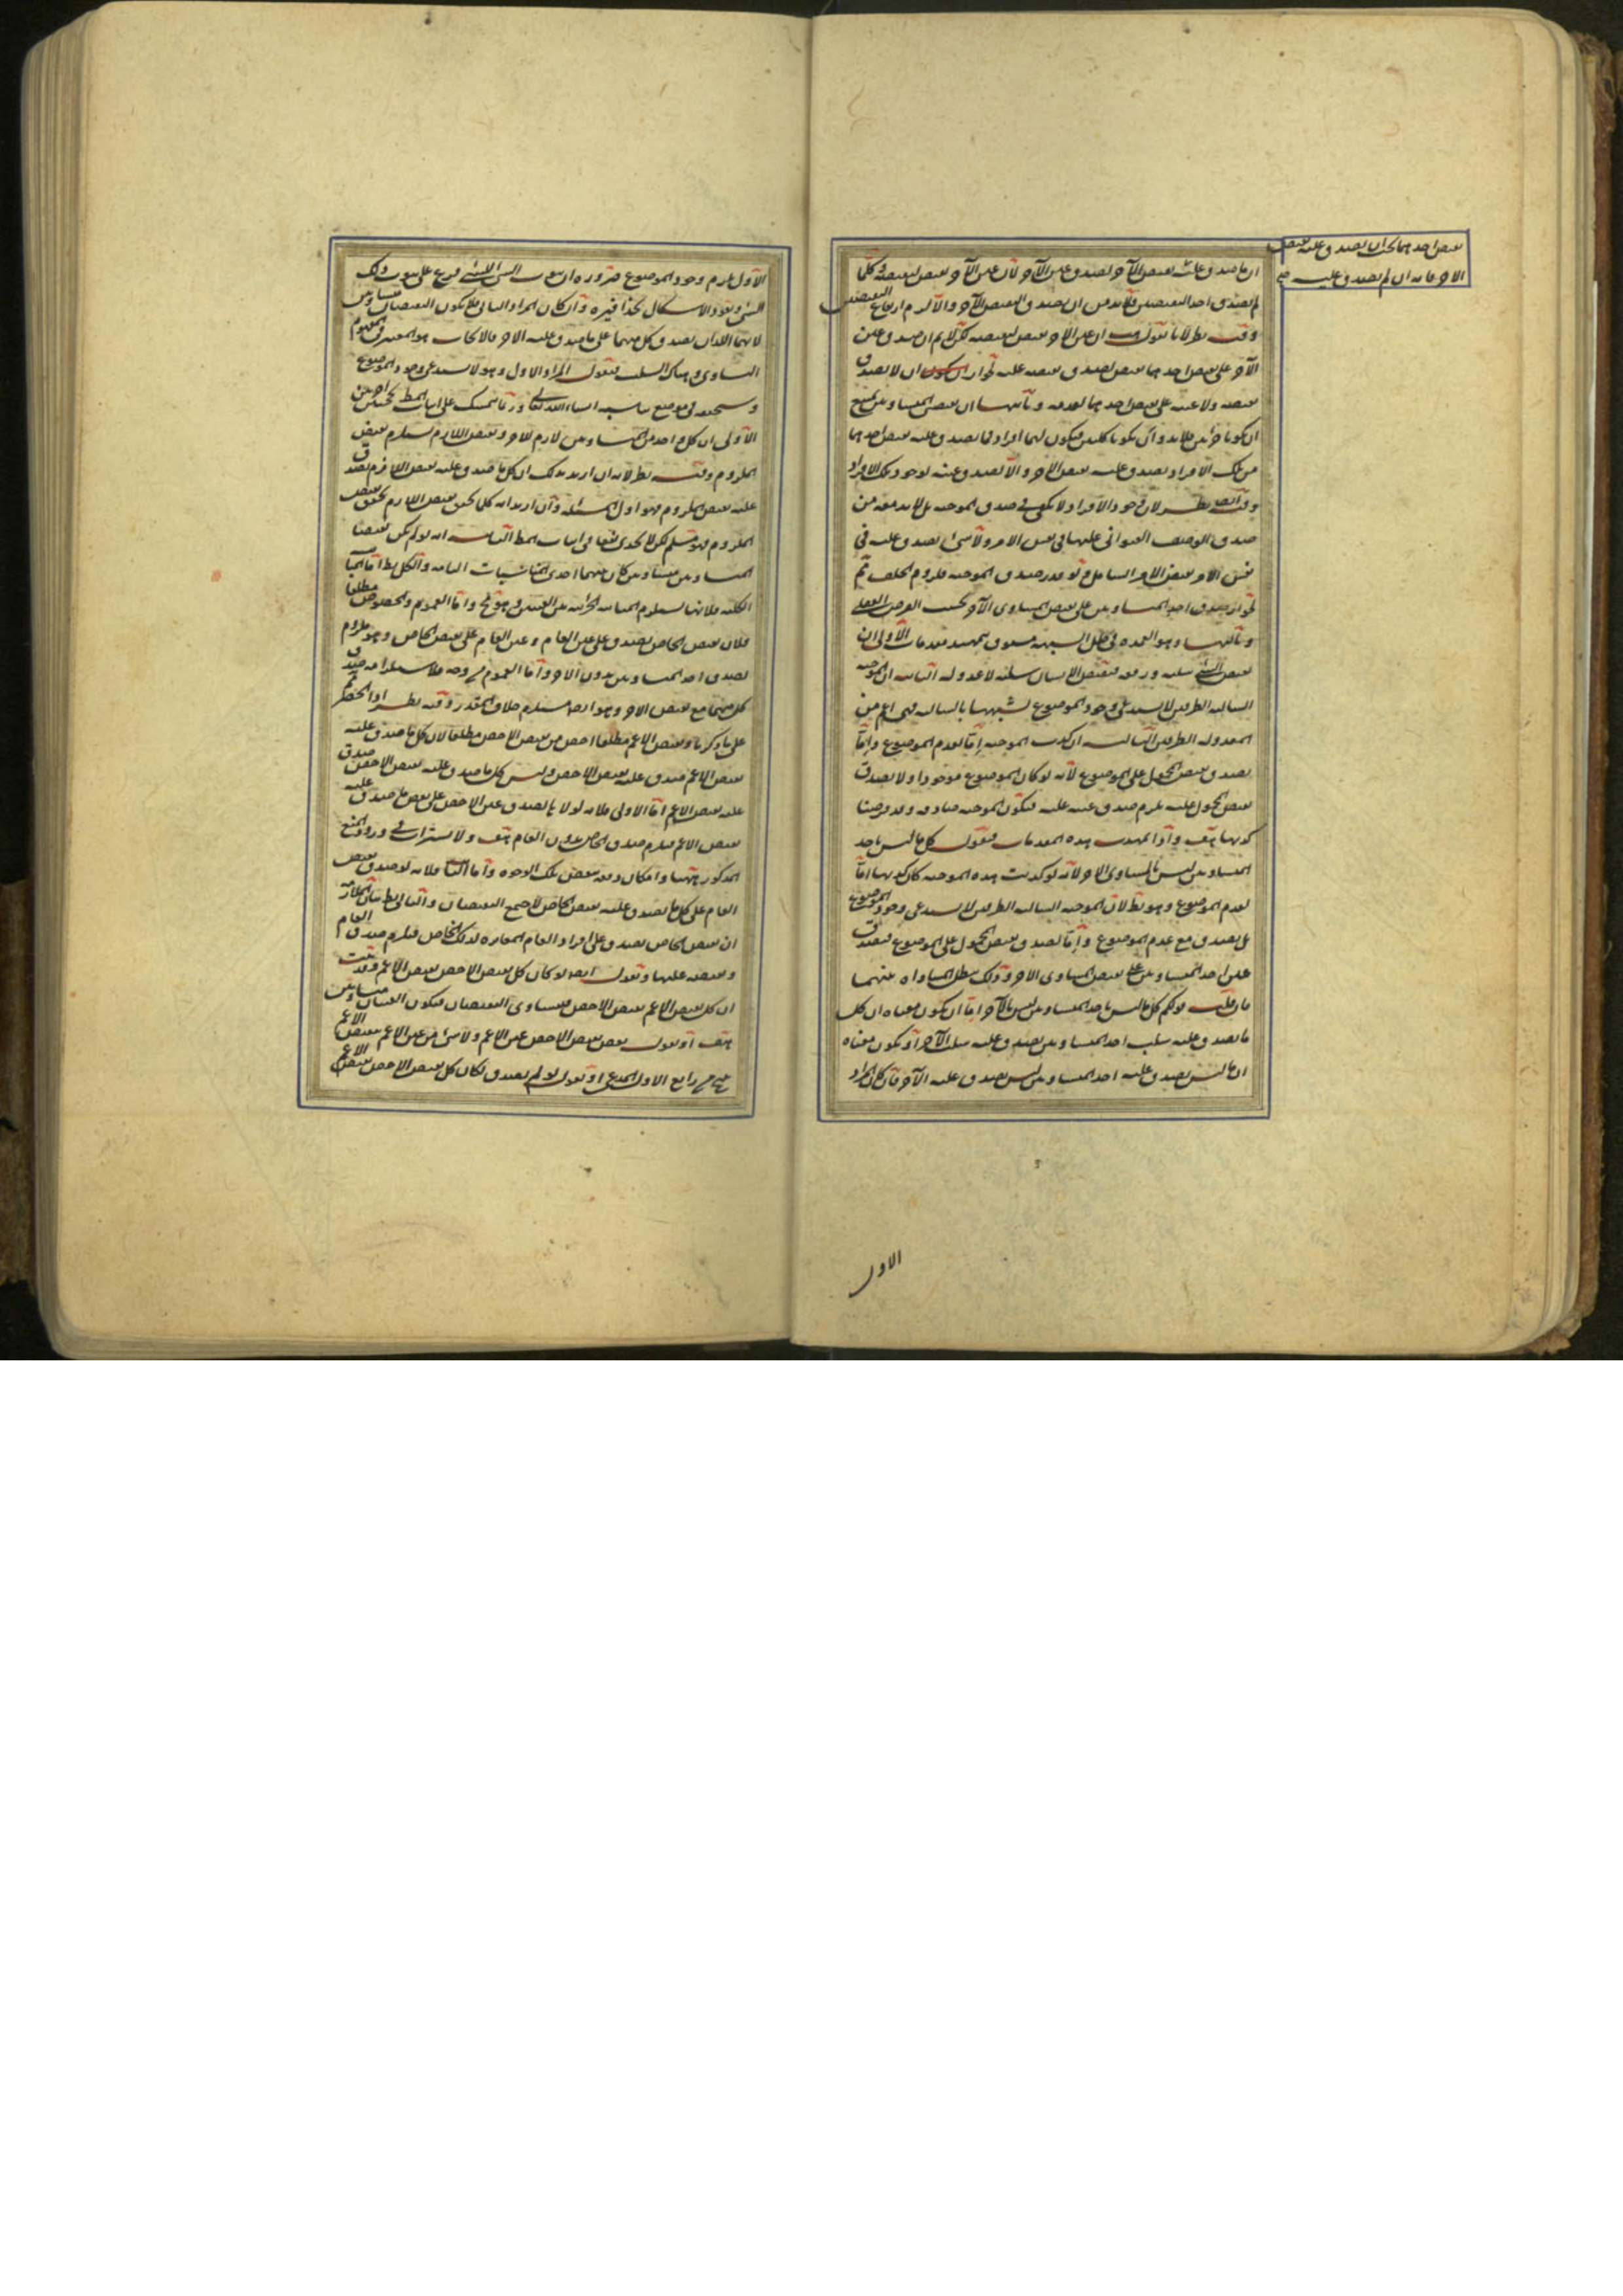 نقيض احدهما يجب ان يصدق عليه نقيض
الآخر فانه ان لم يصدق عليه صح
ان ما صدق عليه نقيض الآخر لصدق عين الآخر لان عين الآخر نقيض لنقيضه وكلما
لم يصدق احد النقيضين فلا بد من ان يصدق النقيض الآخر والا لزم ارتفاع النقيضين
وفيه نظر لانا نقول هب ان عين الآخر نقيض لنقيضه لكن لا نم ان صدق عين
الآخر على نقيض احدهما نقيض لصدق نقيضه عليه لجواز ان لا يصدق
نقيضه ولا عينه على نقيض احدهما لعدمه وثانيها ان نقيض المتساويين يمتنع
ان يكونا جزئين فلا بد وان يكونا كليين فيكون لهما افراد فما يصدق عليه نقيض احدهما
من تلك الافراد يصدق عليه نقيض الآخر والا لصدق عينه لوجود تلك الافراد
وفيه ايضا نظر لان وجود الافراد لا يكفي في صدق الموجبة بل لا بد معه من
صدق الوصف العنواني عليها في نفس الامر ولا شيء يصدق عليه في
نفس الامر نقيض الامر الشامل ولو قدر صدق الموجبة فلزوم الخلف ثم
لجواز صدق احد المتساويين على نقيض المساوي الآخر بحسب الفرض العقلي
وثالثها وهو العمدة في حل الشبهة مسبوق بتمهيد مقدمات الاولى ان
نقيض الشيء سلبه ورفعه فنقيض الانسان سلبه لا عدوله الثانية ان الموجبة
السالبة الطرفين لا يستدعي وجود الموضوع لشبهها بالسالبة فهي اعم من
المعدولة الطرفين الثالثة ان كذب الموجبة اما لعدم الموضوع واما
لصدق نقيض المحمول على الموضوع لانه لو كان الموضوع موجودا ولا يصدق
نقيض المحمول عليه يلزم صدق عينه عليه فيكون الموجبة صادقة وقد فرضنا
كذبها هف واذا تمهدت هذه المقدمات فنقول كل ما ليس باحد
المتساويين ليس بالمساوي الآخر لانه لو كذبت هذه الموجبة كان كذبها اما
لعدم الموضوع وهو بط لان الموجبة السالبة الطرفين لا يستدعي وجود الموضوع
بل يصدق مع عدم الموضوع واما لصدق نقيض المحمول على الموضوع فيصدق
عين احد المتساويين على نقيض المساوي الآخر وذلك يبطل المساواة بينهما
فان قلت قولكم كل ما ليس باحد المتساويين ليس بالآخر اما ان يكون معناه ان كل
ما يصدق عليه سلب احد المتساويين يصدق عليه سلب الآخر او يكون معناه
ان ما ليس يصدق عليه احد المتساويين ليس يصدق عليه الآخر فان كان المراد
الاول
الاول يلزم وجود الموضوع ضرورة ان ثبوت الشيء للشيء فرع على ثبوت ذلك
الشيء ويعود الاشكال بحذافيره وان كان المراد الثاني فلا يكون النقيضان متساويين
لانهما اللذان يصدق كل منهما على ما صدق عليه الآخر فالايجاب هو المعتبر في مفهوم
التساوي وهناك السلب فنقول المراد الاول وهو لا يستدعي وجود الموضوع
وسنحققه في موضع يناسبه ان شاء الله تعالى وربما يتمسك على اثبات المط بحجتين اخريين
الاولى ان كل واحد من المتساويين لازم للآخر ونقيض اللازم يستلزم نقيض
الملزوم وفيه نظر لانه ان اريد بذلك ان كل ما صدق عليه نقيض اللازم يصدق
عليه نقيض الملزوم فهو اول المسئلة وان اريد انه كلما تحقق نقيض اللازم تحقق نقيض
الملزوم فهو مسلم لكن لا يجدي نفعا في اثبات المط الثانية انه لو لم يكن نقيضا
المتساويين متساويين كان بينهما احدى المناسبات الباقية والكل بط اما المباينة
الكلية فلانها لستلزم المباينة الجزئية بين العينين وهو مح واما العموم والخصوص مطلقا
فلان نقيض الخاص يصدق على عين العام وعين العام على نقيض الخاص وهو ملزوم
لصدق احد المتساويين بدون الآخر واما العموم من وجه فلاستلزامه صدق
كل منهما مع نقيض الآخر وهو ايضا مستلزم خلاف المقدر وفيه نظر اذ الحصر ثم
على ما ذكرنا ونقيض الاعم مطلقا اخص من نقيض الاخص مطلقا لان كل ما صدق عليه
نقيض الاعم صدق عليه نقيض الاخص وليس كل ما صدق عليه نقيض الاخص صدق
عليه نقيض الاعم اما الاولى فلانه لولاها لصدق عين الاخص على بعض ما صدق عليه
نقيض الاعم فيلزم صدق الخاص بدون العام هف ولا استتراب في ورود المنع
المذكور ههنا وامكان دفعه ببعض تلك الوجوه واما الثانية فلانه لو صدق نقيض
العام على كل ما يصدق عليه نقيض الخاص لاجتمع النقيضان والتالي بط بيان الملازمة
ان نقيض الخاص يصدق على افراد العام المغايرة لذلك الخاص فيلزم صدق العام
ونقيضه عليها ونقول ايضا لو كان كل نقيض الاخص نقيض الاعم وقد ثبت
ان كل نقيض الاعم نقيض الاخص فيتساوى النقيضان فيكون العينان متساويين
هف او نقول بعض نقيض الاخص عين الاعم ولا شيء من عين الاعم بنقيض الاعم
ينتج من رابع الاول المدعى او نقول لو لم يصدق لكان كل نقيض الاخص نقيض الاعم